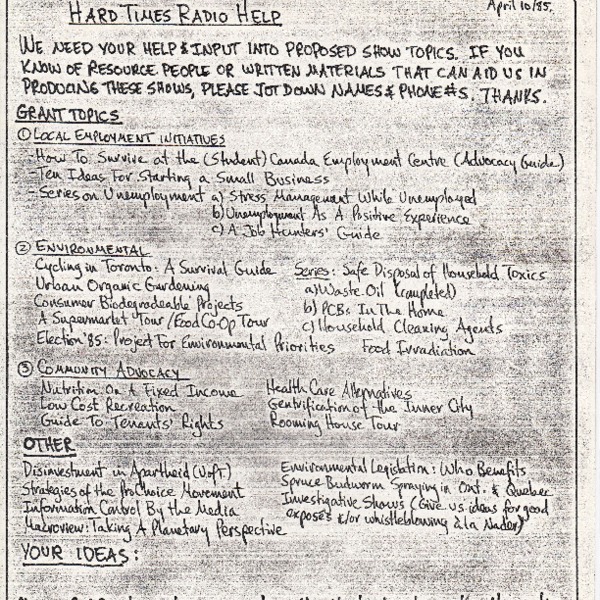 April 10/85.
HARD TIMES RADIO HELP
WE NEED YOUR HELP & INPUT INTO PROPOSED SHOW TOPICS. IF YOU
KNOW OF RESOURCE PEOPLE OR WRITTEN MATERIALS THAT CAN AID US IN
PRODUCING THESE SHOWS, PLEASE JOT DOWN NAMES & PHONE #S. THANKS.
GRANT TOPICS
① LOCAL EMPLOYMENT INITIATIVES
- How To Survive at the (Student) Canada Employment Centre (Advocacy Guide)
- Ten Ideas For Starting a Small Business
- Series on Unemployment a) Stress Management While Unemployed
b) Unemployment As A Positive Experience
c) A Job Hunters' Guide
② ENVIRONMENTAL
Cycling in Toronto: A Survival Guide
Urban Organic Gardening
Consumer Biodegradeable Projects
A Supermarket Tour/Food Co-Op Tour
Election '85: Project For Environmental Priorities
Series: Safe Disposal of Household Toxics
a) Waste Oil (completed)
b) PCBs In The Home
c) Household Cleaning Agents
Food Irradiation
③ COMMUNITY ADVOCACY
Nutrition On A Fixed Income
Low Cost Recreation
Guide To Tenants' Rights
Health Care Alternatives
Gentrification of the Inner City
Rooming House Tour
OTHER
Disinvestment in Apartheid (UofT.)
Strategies of the ProChoice Movement
Information Control By the Media
Macroview: Taking A Planetary Perspective
Environmental Legislation: Who Benefits
Spruce Budworm Spraying in Ont. & Quebec
Investigative Shows (Give us ideas for good
exposés &/or whistleblowing à la Nader)
YOUR IDEAS: